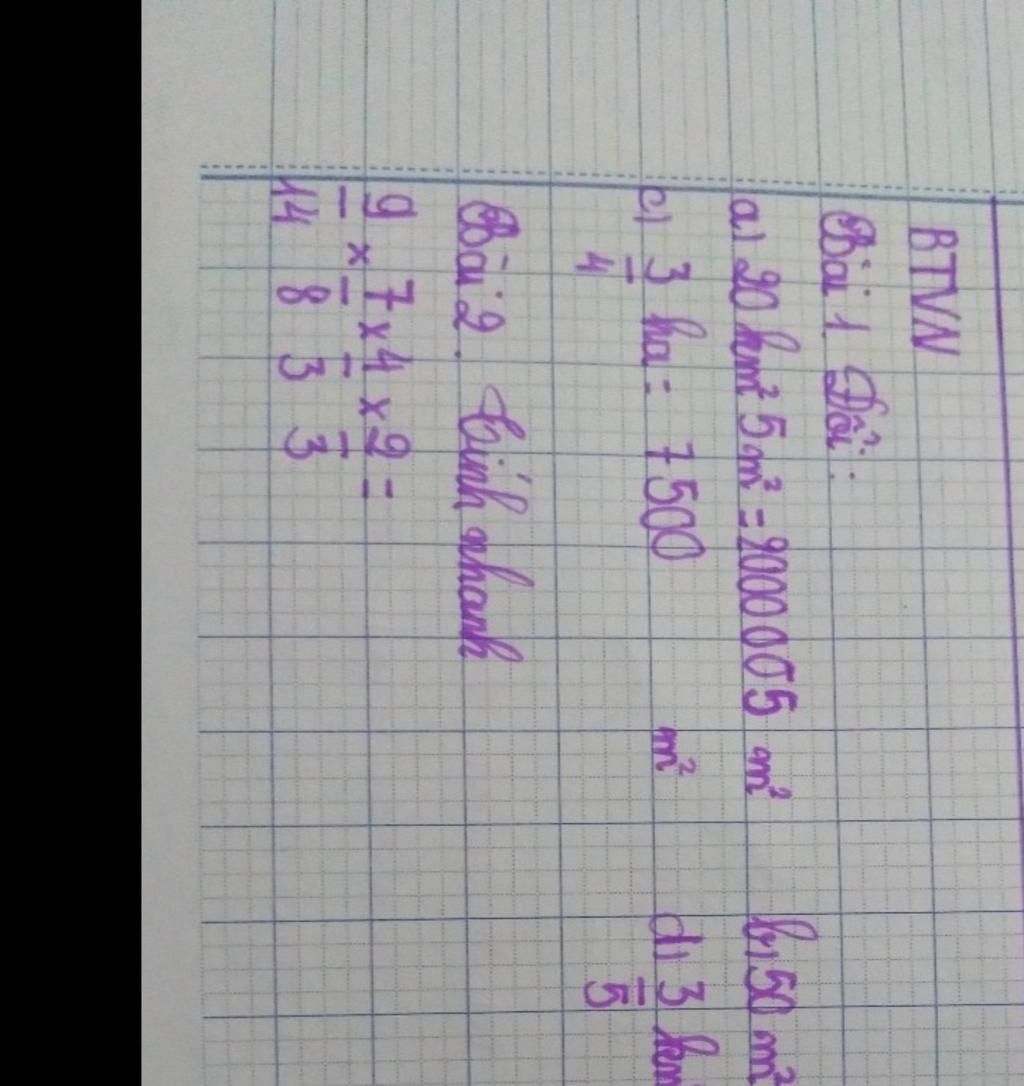 BTVN
Bài 1. Đổi:
a) 20 km² 5 m² = 2000005 m² b) 50 m²
c) 3/4 ha = 7500 m² d) 3/5
Bài 2. Tính nhanh
9/14 x 7/8 x 4/3 x 2/3 =